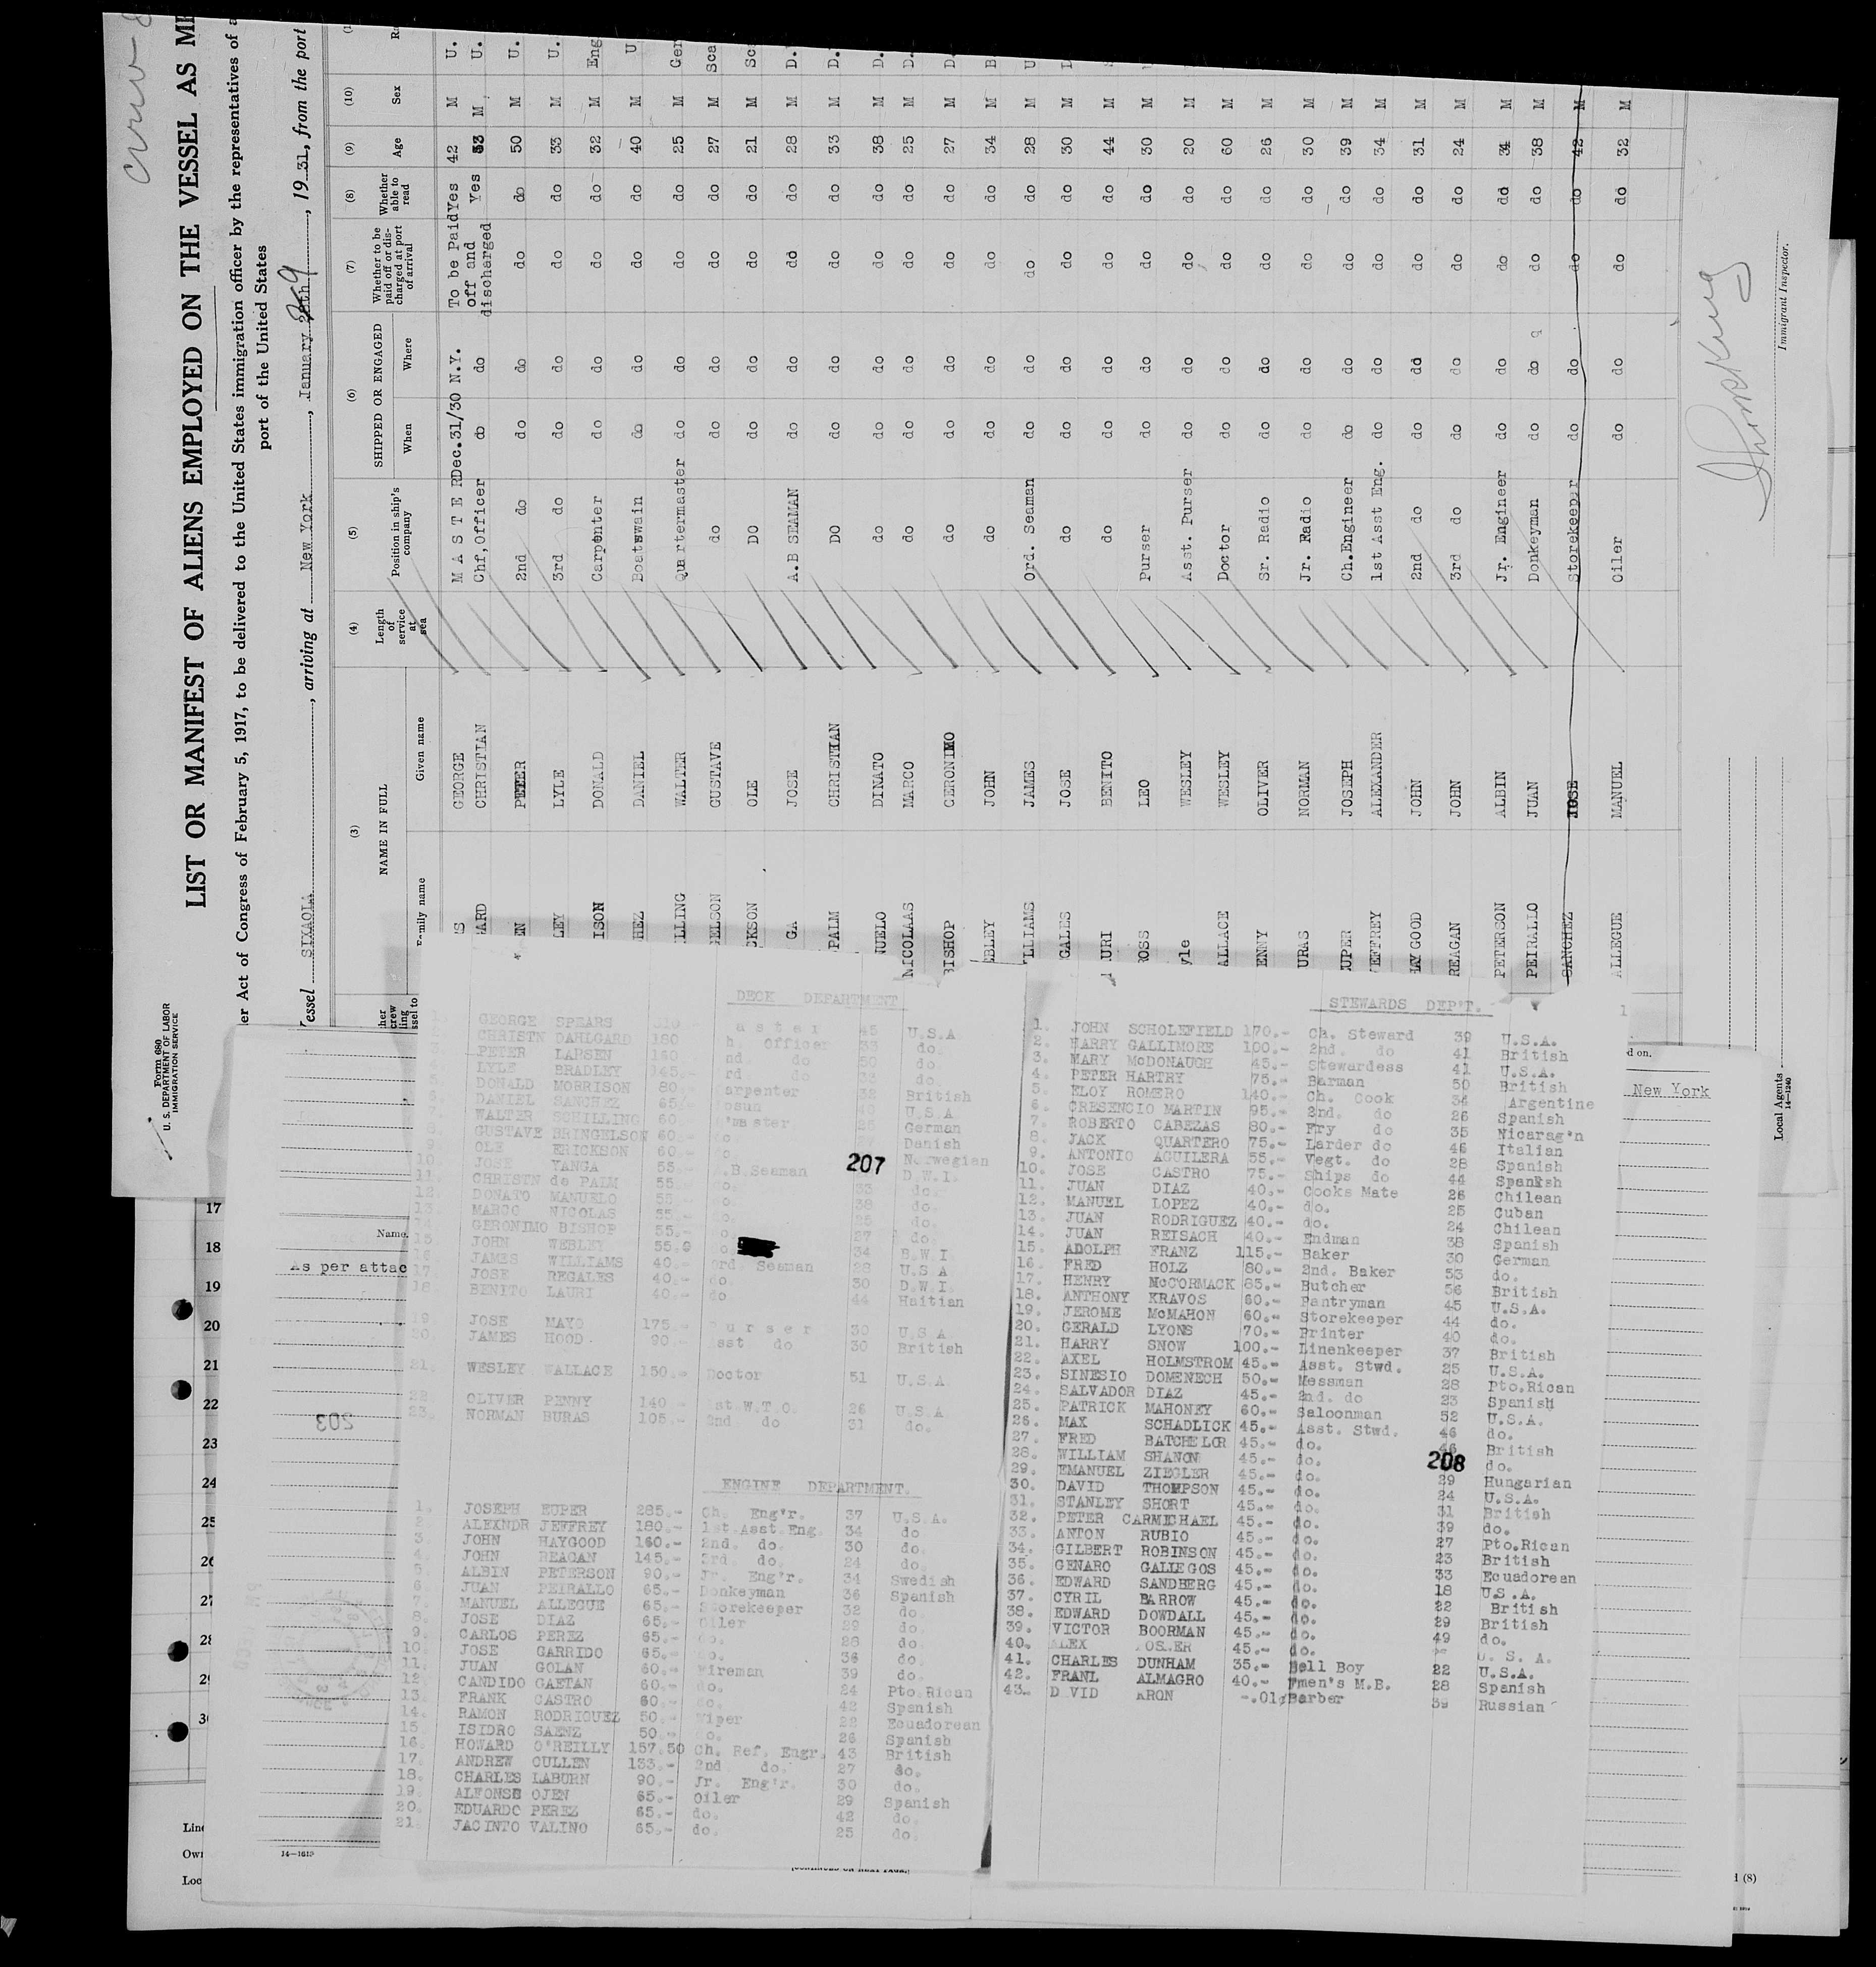 crew
Form 680
U. S. DEPARTMENT OF LABOR
IMMIGRATION SERVICE
LIST OR MANIFEST OF ALIENS EMPLOYED ON THE VESSEL AS
er Act of Congress of February 5, 1917, to be delivered to the United States immigration officer by the representatives of a
port of the United States
essel SIXAOLA, arriving at New York, January 29, 1931, from the port
(3) (4) (5) (6) (7) (8) (9) (10)
NAME IN FULL
Family name Given name
Length of service at sea
Position in ship's company
SHIPPED OR ENGAGED
When Where
Whether to be paid off or discharged at port of arrival
Whether able to read
Age
Sex
S GEORGE M A S T E R Dec.31/30 N.Y. To be Paid off and discharged Yes 42 M U.
GARD CHRISTIAN Chf,Officer do do Yes 53 M U.
EN PETER 2nd do do do do do 50 M U.
LEY LYLE 3rd do do do do do 33 M U.
ISON DONALD Carpenter do do do do 32 M Eng
HEZ DANIEL Boatswain do do do do 40 M U
LLING WALTER Quartermaster do do do do 25 M Ger
GELSON GUSTAVE do do do do do 27 M Sca
CKSON OLE DO do do do do 21 M Sca
GA JOSE A.B SEAMAN do do do do 28 M D.
PALM CHRISTIAN DO do do do do 33 M D.
NUELO DINATO do do do do do 38 M D.
NICOLAAS MARCO do do do do do 25 M D.
BISHOP GERONIMO do do do do do 27 M D.
EBLEY JOHN do do do do do 34 M B
LLIAMS JAMES Ord. Seaman do do do do 28 M U
GALES JOSE do do do do do 30 M
URI BENITO do do do do do 44 M
OSS LEO Purser do do do do 30 M
yle WESLEY Asst. Purser do do do do 20 M
ALLACE WESLEY Doctor do do do do 60 M
ENNY OLIVER Sr. Radio do do do do 26 M
URAS NORMAN Jr. Radio do do do do 30 M
EUPER JOSEPH Ch.Engineer do do do do 39 M
JEFFREY ALEXANDER 1st Asst Eng. do do do do 34 M
HAYGOOD JOHN 2nd do do do do do 31 M
REAGAN JOHN 3rd do do do do do 24 M
PETERSON ALBIN Jr. Engineer do do do do 34 M
PEIRALLO JUAN Donkeyman do do do do 38 M
SANCHEZ JOSE Storekeeper do do do do 42 M
ALLEGUE MANUEL Oiler do do do do 32 M
Immigrant Inspector.
Local Agents
14—1240
New York
Name.
As per attac
203
17
18
19
20
21
22
23
24
25
26
27
28
29
30
DECK DEPARTMENT
GEORGE SPEARS aster 45 U.S.A
CHRISTN DAHLGARD 180 h. Officer 53 do.
PETER LARSEN 160 nd. do 50 do
LYLE BRADLEY 145.- rd do 33 do.
DONALD MORRISON 80.- arpenter 32 British
DANIEL SANCHEZ 65.- osun U.S.A.
WALTER SCHILLING 60.- master 25 German
GUSTAVE BRINGELSON 60.- do. Danish
OLE ERICKSON 60.- Norwegian
207
10. JOSE YANGA 55.- .B.Seaman D.W.I.
11. CHRISTN de PALM 55.- do. 33 do.
12. DONATO MANUELO 55 do. 38 do.
13. MARCO NICOLAS 55.- do. 25 do.
14. GERONIMO BISHOP 55.- do. 27 do.
15 JOHN WEBLEY 55.0 do 34 B.W.I
16. JAMES WILLIAMS 40.- ord. Seaman 28 U.S.A
17. JOSE REGALES 40.- do. 30 D.W.I.
18. BENITO LAURI 40.- do. 44 Haitian
19. JOSE MAYO 175.- P u r s e r 30 U.S.A.
20. JAMES HOOD 90.- Asst do 30 British
21. WESLEY WALLACE 150.- Doctor 51 U.S.A.
22 OLIVER PENNY 140.- 1st.W.T.O. 26 U.S.A
23. NORMAN BURAS 105.- 2nd. do 31 do.
ENGINE DEPARTMENT.
1. JOSEPH EUPER 285.- Ch. Eng'r. 37 U.S.A.
2. ALEXNDR JEFFREY 180.- 1st.Asst.Eng. 34 do
3. JOHN HAYGOOD 160.- 2nd. do. 30 do.
4. JOHN REAGAN 145.- 3rd. do. 24 do.
5. ALBIN PETERSON 90.- Jr. Eng'r. 34 Swedish
6. JUAN PEIRALLO 65.- Donkeyman 36 Spanish
7. MANUEL ALLEGUE 65.- Storekeeper 32 do.
8. JOSE DIAZ 65.- Oiler 29 do.
9. CARLOS PEREZ 65.- do. 28 do.
10. JOSE GARRIDO 65.- do. 36 do.
11. JUAN GOLAN 60.- Fireman 39 do.
12. CANDIDO GAETAN 60.- do. 24 Pto.Rican
13. FRANK CASTRO 60.- do. 42 Spanish
14. RAMON RODRIGUEZ 50.- Wiper 22 Ecuadorean
15. ISIDRO SAENZ 50.- do. 26 Spanish
16. HOWARD O'REILLY 157.50 Ch. Ref. Engr. 43 British
17. ANDREW CULLEN 133.- 2nd do. 27 do.
18. CHARLES LABURN 90.- Jr. Eng'r. 30 do.
19. ALFONSE OJEN 65.- Oiler 29 Spanish
20. EDUARDO PEREZ 65.- do. 42 do.
21. JACINTO VALINO 65.- do. 25 do.
STEWARDS DEP'T.
1. JOHN SCHOLEFIELD 170.- Ch. Steward 39 U.S.A.
2. HARRY GALLIMORE 100.- 2nd. do 41 British
3. MARY McDONAUGH 45.- Stewardess 41 U.S.A.
4. PETER HARTRY 75.- Barman 50 British
5. ELOY ROMERO 140.- Ch. Cook 34 Argentine
6. CRESENCIO MARTIN 95.- 2nd. do 26 Spanish
7. ROBERTO CABEZAS 80.- Fry do 35 Nicarag'n
8. JACK QUARTERO 75.- Larder do 46 Italian
9. ANTONIO AGUILERA 55.- Vegt. do 28 Spanish
10. JOSE CASTRO 75.- Ships do 44 Spanish
11. JUAN DIAZ 40.- Cooks Mate 26 Chilean
12. MANUEL LOPEZ 40.- do. 25 Cuban
13. JUAN RODRIGUEZ 40.- do. 24 Chilean
14. JUAN REISACH 40.- Endman 38 Spanish
15. ADOLPH FRANZ 115.- Baker 30 German
16. FRED HOLZ 80.- 2nd. Baker 33 do.
17. HENRY McCORMACK 85.- Butcher 56 British
18. ANTHONY KRAVOS 60.- Pantryman 45 U.S.A.
19. JEROME McMAHON 60.- Storekeeper 44 do.
20. GERALD LYONS 70.- Printer 40 do.
21. HARRY SNOW 100.- Linenkeeper 37 British
22. AXEL HOLMSTROM 45.- Asst. Stwd. 25 U.S.A.
23. SINESIO DOMENECH 50.- Messman 28 Pto.Rican
24. SALVADOR DIAZ 45.- 2nd. do 23 Spanish
25. PATRICK MAHONEY 60.- Saloonman 52 U.S.A.
26. MAX SCHADLICK 45.- Asst. Stwd. 46 do.
27. FRED BATCHELOR 45.- do. 46 British
28. WILLIAM SHANON 45.- do. do.
208
29. EMANUEL ZIEGLER 45.- do. 29 Hungarian
30. DAVID THOMPSON 45.- do. 24 U.S.A.
31. STANLEY SHORT 45.- do. 31 British
32. PETER CARMICHAEL 45.- do. 39 do.
33. ANTON RUBIO 45.- do. 27 Pto.Rican
34. GILBERT ROBINSON 45.- do. 23 British
35. GENARO GALLEGOS 45.- do. 33 Ecuadorean
36. EDWARD SANDBERG 45.- do. 18 U.S.A.
37. CYRIL BARROW 45.- do. 22 British
38. EDWARD DOWDALL 45.- do. 29 British
39. VICTOR BOORMAN 45.- do. 49 do.
40. ALEX 45.- do. U. S. A.
41. CHARLES DUNHAM 35.- Bell Boy 22 U.S.A.
42. FRANL ALMAGRO 40.- Fmen's M.B. 28 Spanish
43. D VID ARON -.01¢ Barber 39 Russian
14—1613